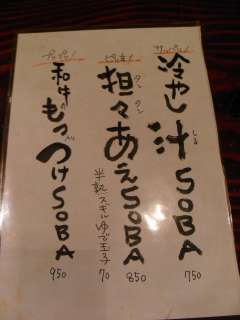 サッパリ!
冷やし汁SOBA
しる
750
ピリ辛!
担々あえSOBA
タンタン
850
半熟スギルゆで玉子
70
プップツ!
和牛もつつけSOBA
950